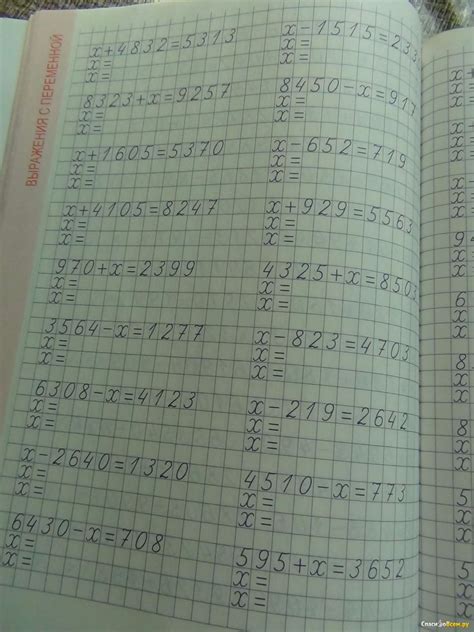 ВЫРАЖЕНИЯ С ПЕРЕМЕННОЙ
x+4832=5313
x=
x=
8323+x=9257
x=
x=
x+1605=5370
x=
x=
x+4105=8247
x=
x=
970+x=2399
x=
x=
3564-x=1277
x=
x=
6308-x=4123
x=
x=
x-2640=1320
x=
x=
6430-x=708
x=
x=
x-1515=233
x=
x=
8450-x=917
x=
x=
x-652=719
x=
x=
x+929=5563
x=
x=
4325+x=8503
x=
x=
x-823=4703
x=
x=
x-219=2642
x=
x=
4510-x=773
x=
x=
595+x=3652
x=
x=
СпасиДоВсем.ру